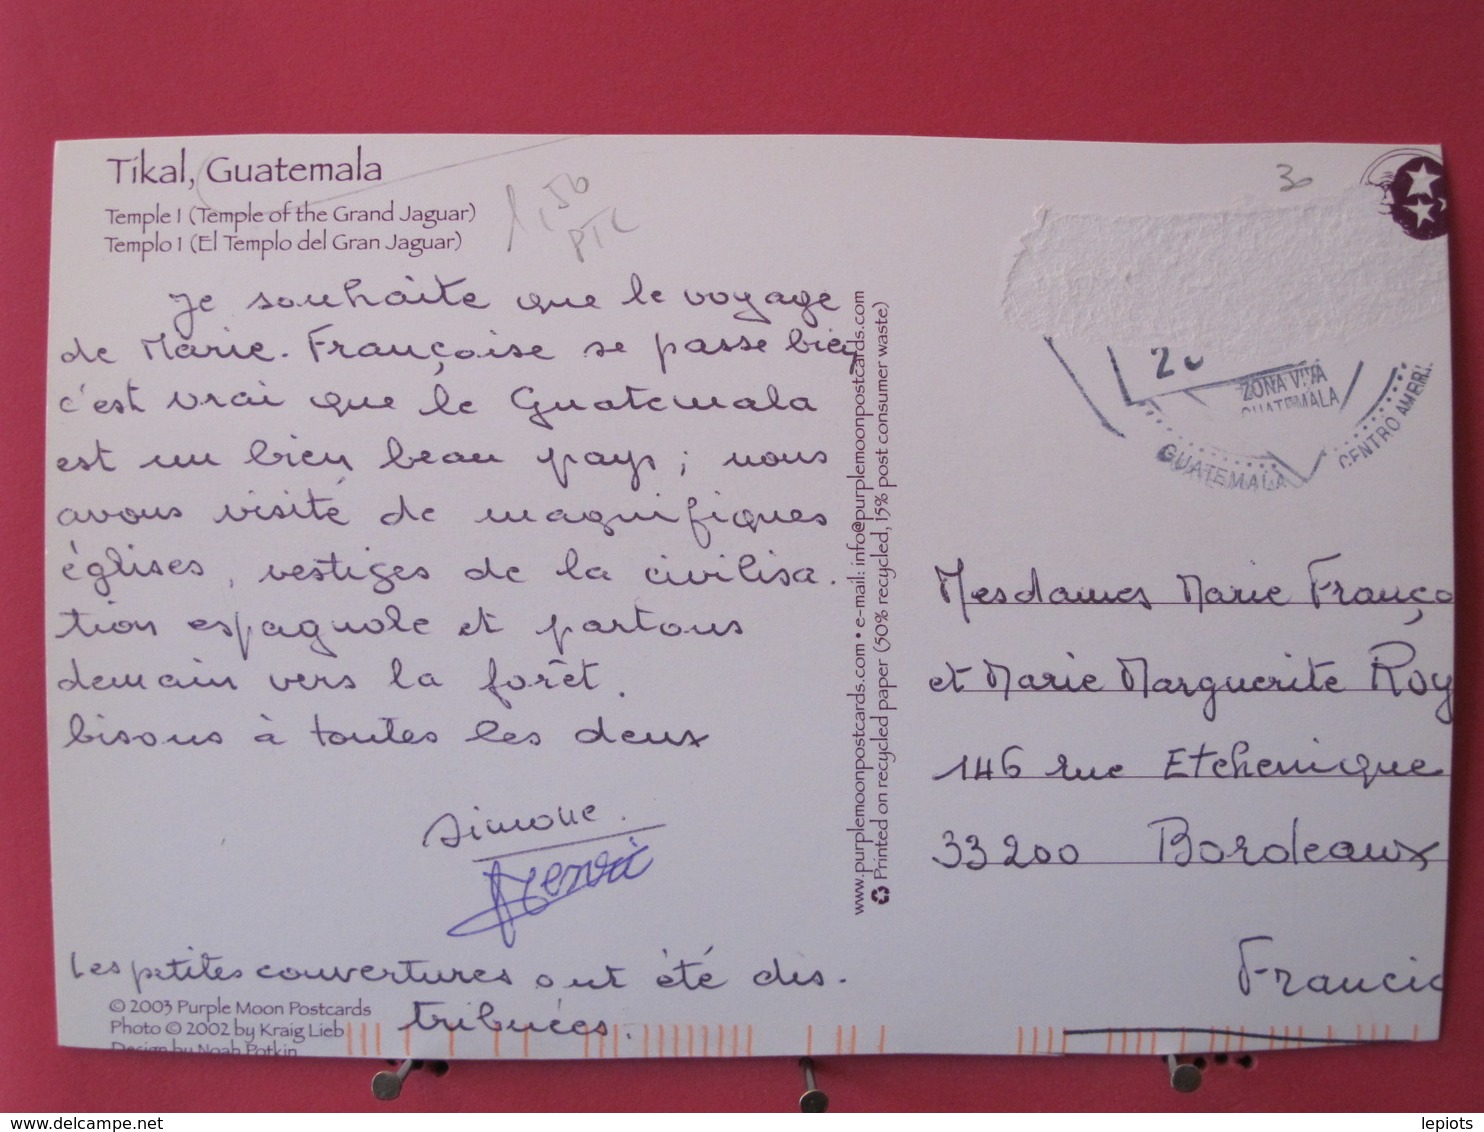 Tikal, Guatemala
Temple I (Temple of the Grand Jaguar)
Templo 1 (El Templo del Gran Jaguar)
1,50
30
Je souhaite que le voyage
de Marie-Françoise se passe bien
c'est vrai que le Guatemala
est un bien beau pays ; nous
avons visité de magnifiques
églises, vestiges de la civilisa-
tion espagnole et partons
demain vers la forêt.
bisous à toutes les deux
Simone.
Les petites couvertures ont été dis-
tribuées.
© 2003 Purple Moon Postcards
Photo © 2002 by Kraig Lieb
Design by Noah Potkin
www.purplemoonpostcards.com • e-mail: info@purplemoonpostcards.com
Printed on recycled paper (50% recycled, 15% post consumer waste)
ZONA VIVA
GUATEMALA
GUATEMALA
CENTRO AMERI
Mesdames Marie Franço
et Marie Marguerite Roy
146 rue Etchenique
33200 Bordeaux
Francia
http://www.delcampe.net
lepiots